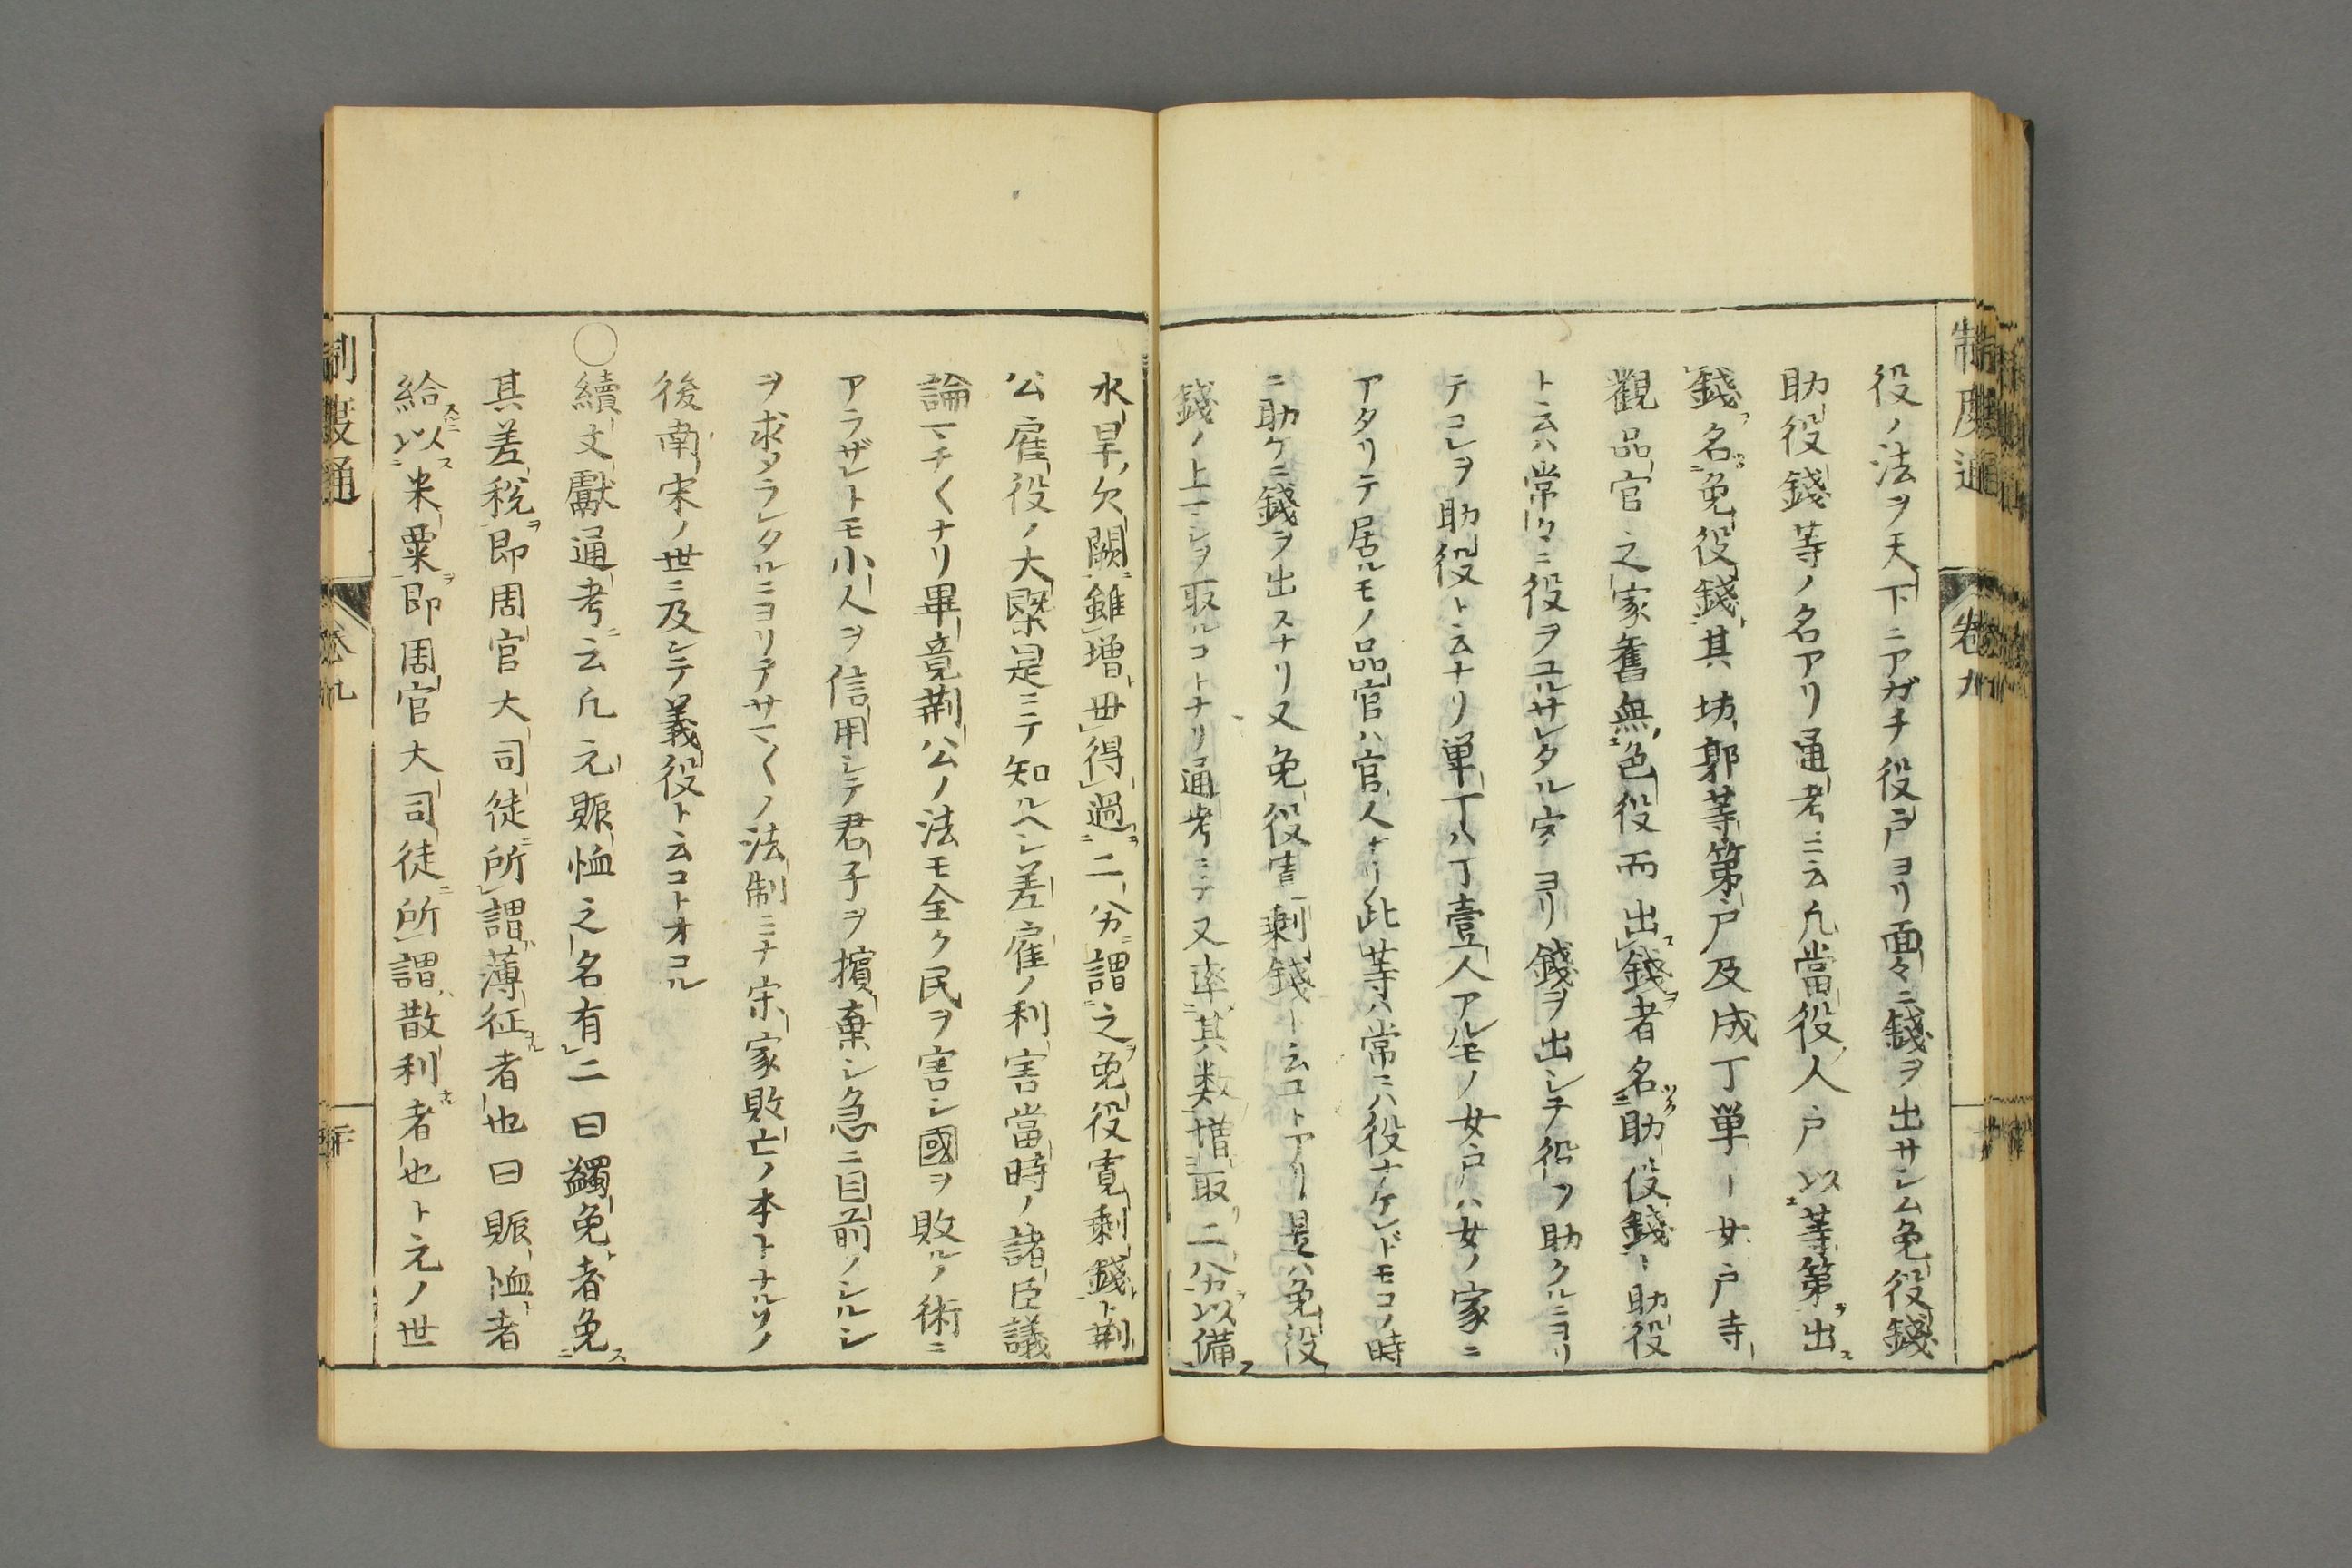 制度通 卷九
役ノ法ヲ天下ニアガチ役戸ヨリ面々ニ錢ヲ出サシム免役錢
助役錢等ノ名アリ通考ニ云凢當役人戸以等第ヲ出ス
錢ヲ名ツク免役錢其坊郭等第戸及成丁単丁女戸寺
觀品官之家舊無色役而出錢者名助役錢ト助役
ト云ハ常々ニ役ヲユルサレタル家ヨリ錢ヲ出シテ役ヲ助クルニヨリ
テコレヲ助役ト云ナリ単丁ハ丁壹人アルモノ女戸ハ女ノ家ニ
アタリテ居ルモノ品官ハ官人ナリ此等ハ常ニハ役ナケレドモコノ時
ニ助ケニ錢ヲ出スナリ又免役寛剰錢ト云コトアリ是ハ免役
錢ノ上マシヲ取ルコトナリ通考ニテ又率其数増取二分以備
水旱欠闕雖増毋得過二分謂之免役寛剰錢ト荆
公雇役ノ大槩是ニテ知ルヘシ差雇ノ利害當時ノ諸臣議
論マチ〱ナリ畢竟荆公ノ法モ全ク民ヲ害シ國ヲ敗ルノ術ニ
アラザレトモ小人ヲ信用シテ君子ヲ擯棄シ急ニ目前ノシルシ
ヲ求メラレタルニヨリテサマ〱ノ法制ミナ宋家敗亡ノ本トナルソノ
後南宋ノ世ニ及ンテ義役ト云コトオコル
○續文獻通考ニ云凢元賑恤之名有二曰蠲免者免
其差税即周官大司徒所謂薄征者也曰賑恤者
給以米粟即周官大司徒所謂散利者也ト元ノ世
制度通 卷九